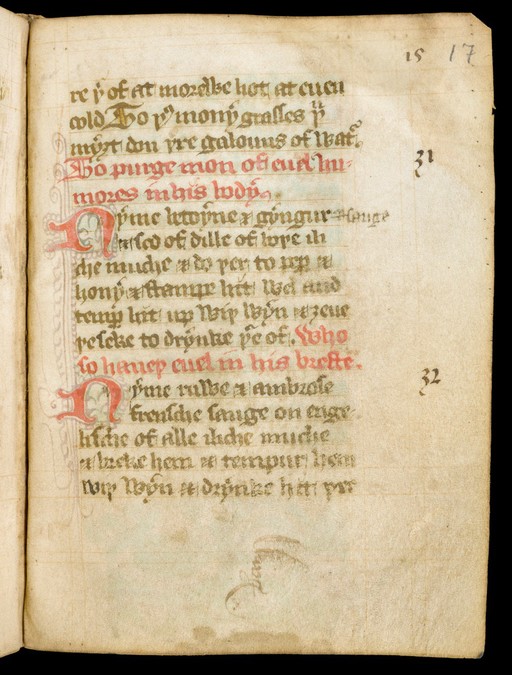 15 17
re þ of at morewe hot at euen
cold Do þ monÿ grasses þ
mÿȝt don þre galouns of wat
To purge mon of euel hu-
mores in his bodÿ
31
Nÿme betoÿne & gÿngur & sauge
& sed of dille of boþe ili
che muche & do þer to pep &
honÿ & stampe hit wel and
temp hit up wiþ wÿn & ȝeue
þe seke to drÿnke þe of. Who
so haueþ euel in his breste.
32
Nÿme ruwe & ambrose
frensche sauge on enge
lische of alle iliche muche
& breke hem & tempur hem
wiþ wÿn & drÿnke hit ȝet